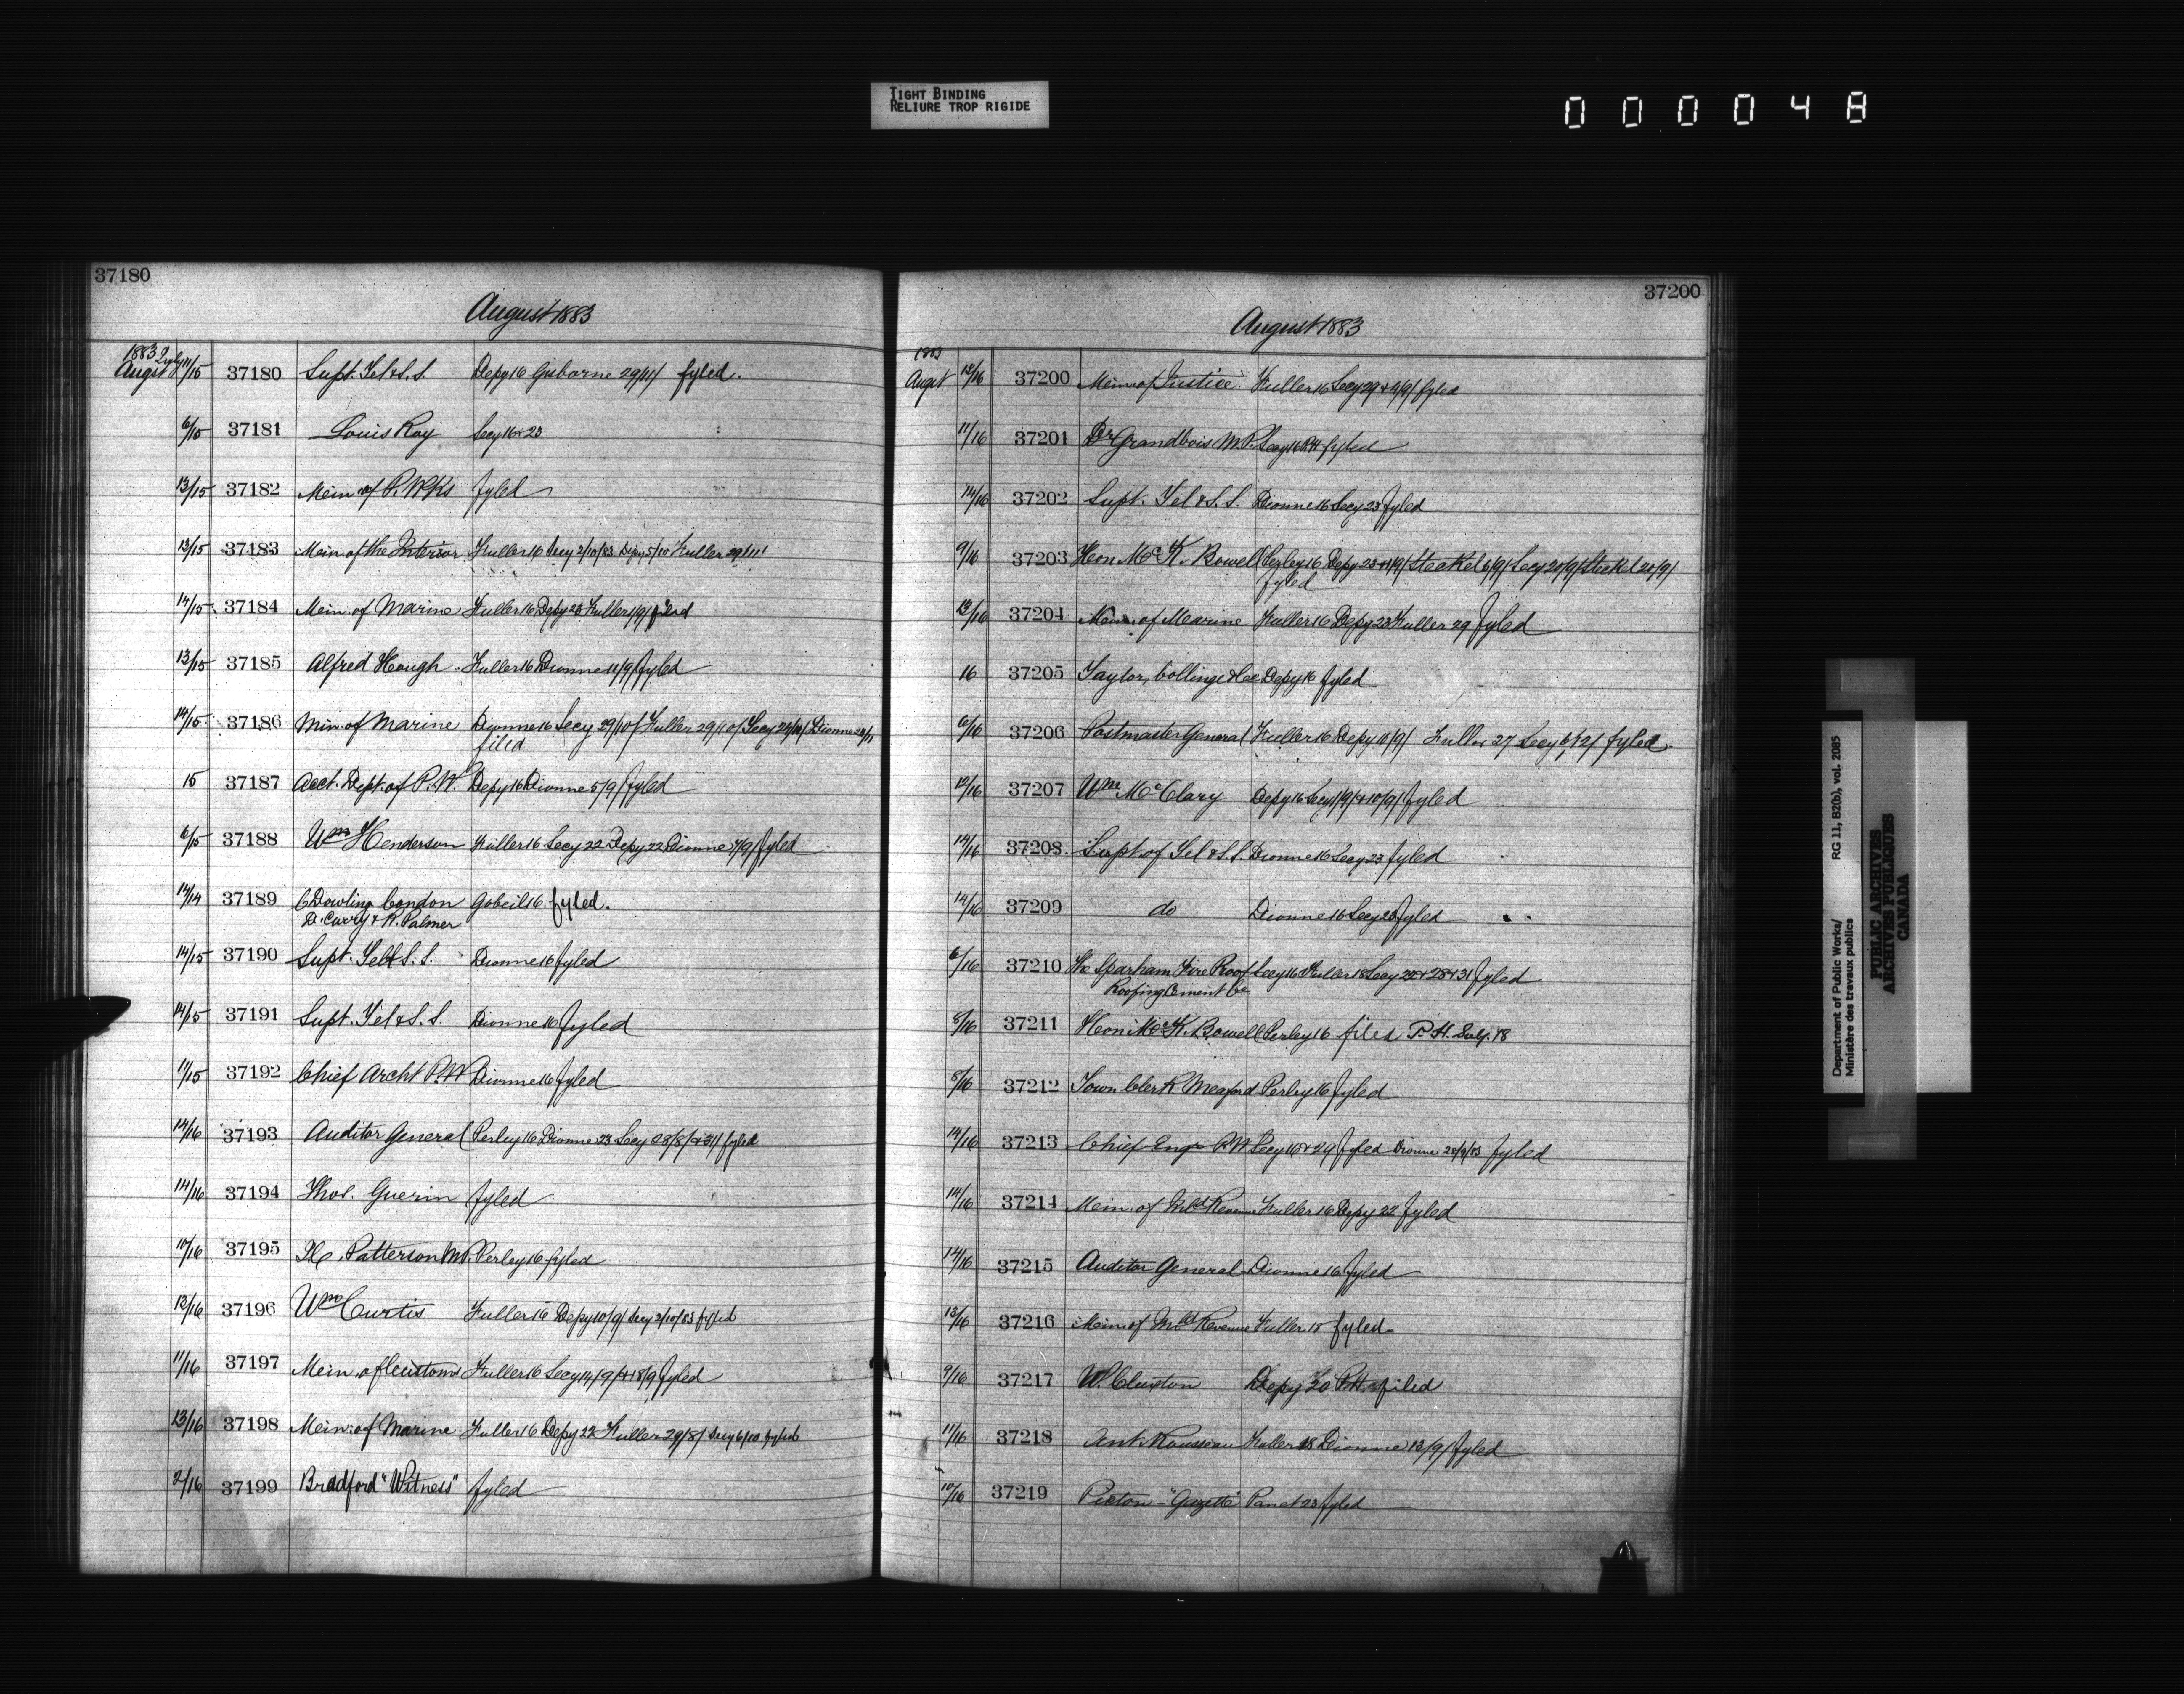 TIGHT BINDING
RELIURE TROP RIGIDE
000048
37180
August 1883
1883 July
Augst 11/15 37180 Supt. Tel & S.S. Depy 16 Gisborne 29/11/ fyled.
6/15 37181 Louis Roy Secy 16 & 23
13/15 37182 Mem of P. Wks fyled
13/15 37183 Mem. of the Interior Fuller 16 Secy 2/10/83 Depy 5/10 Fuller 29/11/
14/15 37184 Mem. of Marine Fuller 16 Depy 23 Fuller 1/9/ filed
13/15 37185 Alfred Hough Fuller 16 Dionne 11/9/ fyled
14/15 37186 Min. of Marine Dionne 16 Secy 29/10/ Fuller 29/10/ Secy Dionne
filed
15 37187 Acct. Dept. of P.W. Depy 16 Dionne 5/9/ fyled
6/15 37188 Wm Henderson Fuller 16 Secy 22 Depy 22 Dionne 4/9/ fyled
14/14 37189 C Dowling London Gobeil 16 fyled.
D. Curry & R. Palmer
14/15 37190 Supt. Tel & S.S. Dionne 16 fyled
14/15 37191 Supt. Tel & S.S. Dionne 16 fyled
11/15 37192 Chief Archt P.W Dionne 16 fyled
14/16 37193 Auditor General Perley 16 Dionne 23 Secy 28/8/ & 31/ fyled
14/16 37194 Thos. Guerin fyled
10/16 37195 Patterson M.P. Perley 16 fyled
13/16 37196 Wm Curtis Fuller 16 Depy 10/9/ Secy 2/10/83 fyled
11/16 37197 Mem. of Customs Fuller 16 Secy 14/9/ & 18/9 fyled
13/16 37198 Mem. of Marine Fuller 16 Depy 22 Fuller 29/8/ Secy 6/10 fyled
2/16 37199 Bradford "Witness" fyled
37200
August 1883
1883
Augst 13/16 37200 Mem. of Justice Fuller 16 Secy 29 & 4/9/ fyled
11/16 37201 Dr Grandbois M.P. Secy 16 P.H. fyled
14/16 37202 Supt. Tel & S.S. Dionne 16 Secy 23 fyled
9/16 37203 Hon McK. Bowell Perley 16 Depy 23 & 1/9/ Steckel 6/9/ Secy 20/9/ Steckel 20/9/
fyled
13/16 37204 Mem. of Marine Fuller 16 Depy 23 Fuller 29 fyled
16 37205 Taylor, Collinge & Co Depy 16 fyled
6/16 37206 Postmaster General Fuller 16 Depy 10/9/ Fuller 27 Secy 6/12/ fyled.
12/16 37207 Wm McClary Depy 16 Secy 1/9/ & 10/9/ fyled
14/16 37208 Supt of Tel & S.S. Dionne 16 Secy 23 fyled
14/16 37209 do Dionne 16 Secy 23 fyled
6/16 37210 The Sparham Fire Proof Secy 16 Fuller 18 Secy 22 & 28 & 31 fyled
Roofing Cement Co
8/16 37211 Hon McK. Bowell Perley 16 filed P.H. Secy. 18
8/16 37212 Town Clerk Meaford Perley 16 fyled
14/16 37213 Chief Engr P.W Secy 16 & 29 fyled Dionne 28/9/83 fyled
14/16 37214 Mem. of Inld Revenue Fuller 16 Depy 22 fyled
14/16 37215 Auditor General Dionne 16 fyled
13/16 37216 Mem. of Inld Revenue Fuller 18 fyled
9/16 37217 W. Cluxton Depy 20 P.H. filed
11/16 37218 Ant. Rousseau Fuller 18 Dionne 13/9/ fyled
10/16 37219 Picton "Gazette" Panet 23 fyled
Department of Public Works/ RG 11, B2(b), vol. 2085
Ministère des travaux publics
PUBLIC ARCHIVES
ARCHIVES PUBLIQUES
CANADA